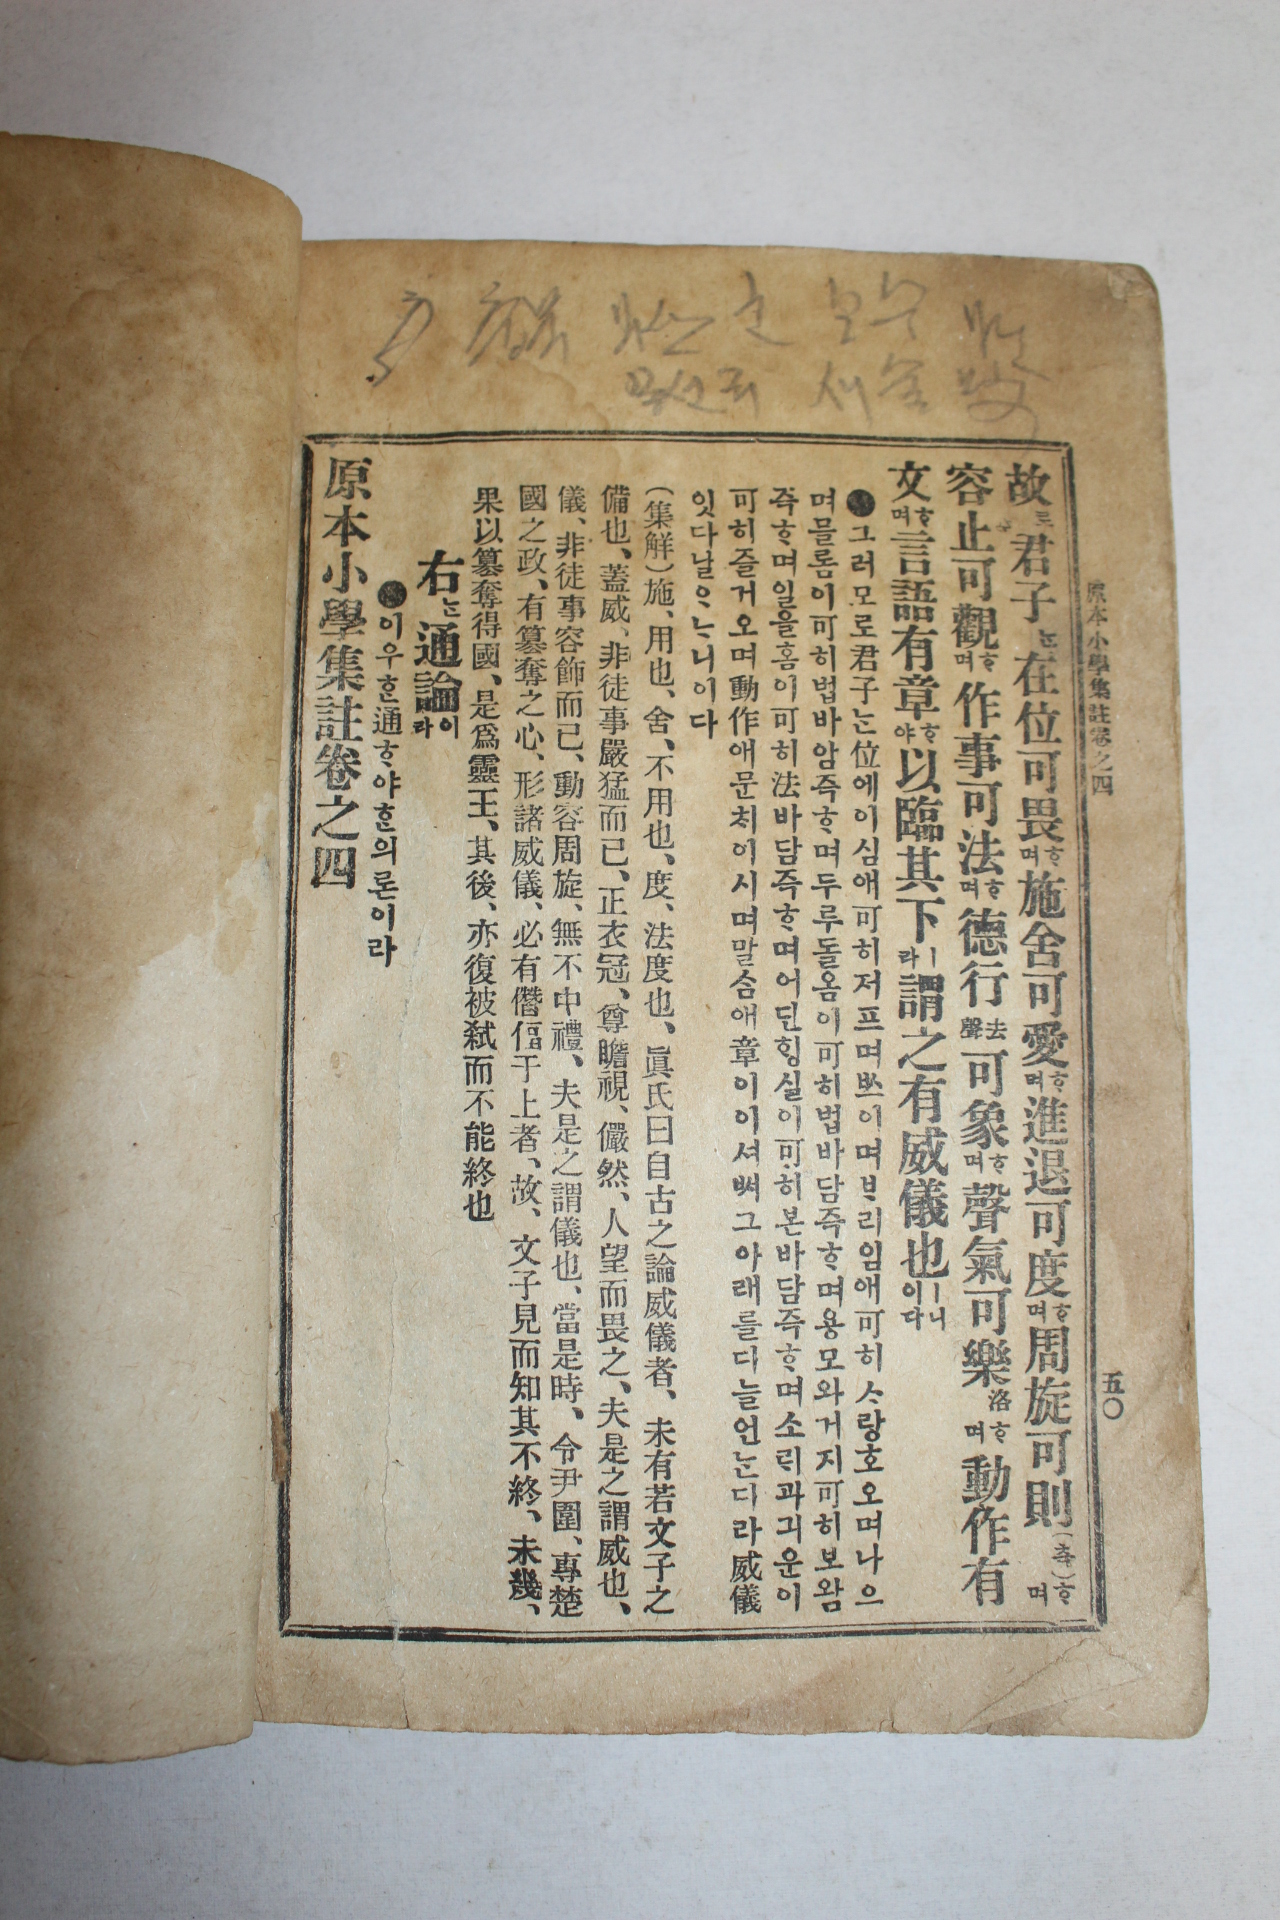 原本小學集註卷之四
五〇
故로君子ᄂᆞᆫ在位可畏ᄒᆞ며施舍可愛ᄒᆞ며進退可度ᄒᆞ며周旋可則(측)ᄒᆞ며
容止可觀ᄒᆞ며作事可法ᄒᆞ며德行去聲可象ᄒᆞ며聲氣可樂洛ᄒᆞ며動作有
文ᄒᆞ며言語有章ᄒᆞ야以臨其下ㅣ라謂之有威儀也ㅣ니이다
그러모로君子ᄂᆞᆫ位에이심애可히저프며ᄡᅳ이며ᄇᆞ리임애可히ᄉᆞ랑호오며나으
며믈롬이可히법바암즉ᄒᆞ며두루돌옴이可히법바담즉ᄒᆞ며용모와거지可히보왐
즉ᄒᆞ며일을홈이可히法바담즉ᄒᆞ며어딘ᄒᆡᆼ실이可히본바담즉ᄒᆞ며소ᄅᆡ과긔운이
可히즐거오며動作애문치이시며말ᄉᆞᆷ애章이이셔ᄡᅥ그아래를디늘언ᄂᆞᆫ디라威儀
잇다닐ᄋᆞᄂᆞ니이다
(集解)施、用也、舍、不用也、度、法度也、眞氏曰自古之論威儀者、未有若文子之
備也、蓋威、非徒事嚴猛而已、正衣冠、尊瞻視、儼然、人望而畏之、夫是之謂威也、
儀、非徒事容飾而已、動容周旋、無不中禮、夫是之謂儀也、當是時、令尹圍、專楚
國之政、有簒奪之心、形諸威儀、必有僭偪于上者、故、文子見而知其不終、未幾、
果以簒奪得國、是爲靈王、其後、亦復被弑而不能終也
右ᄂᆞᆫ通論이라
이우ᄒᆞᆫ通ᄒᆞ야ᄒᆞᆫ의론이라
原本小學集註卷之四